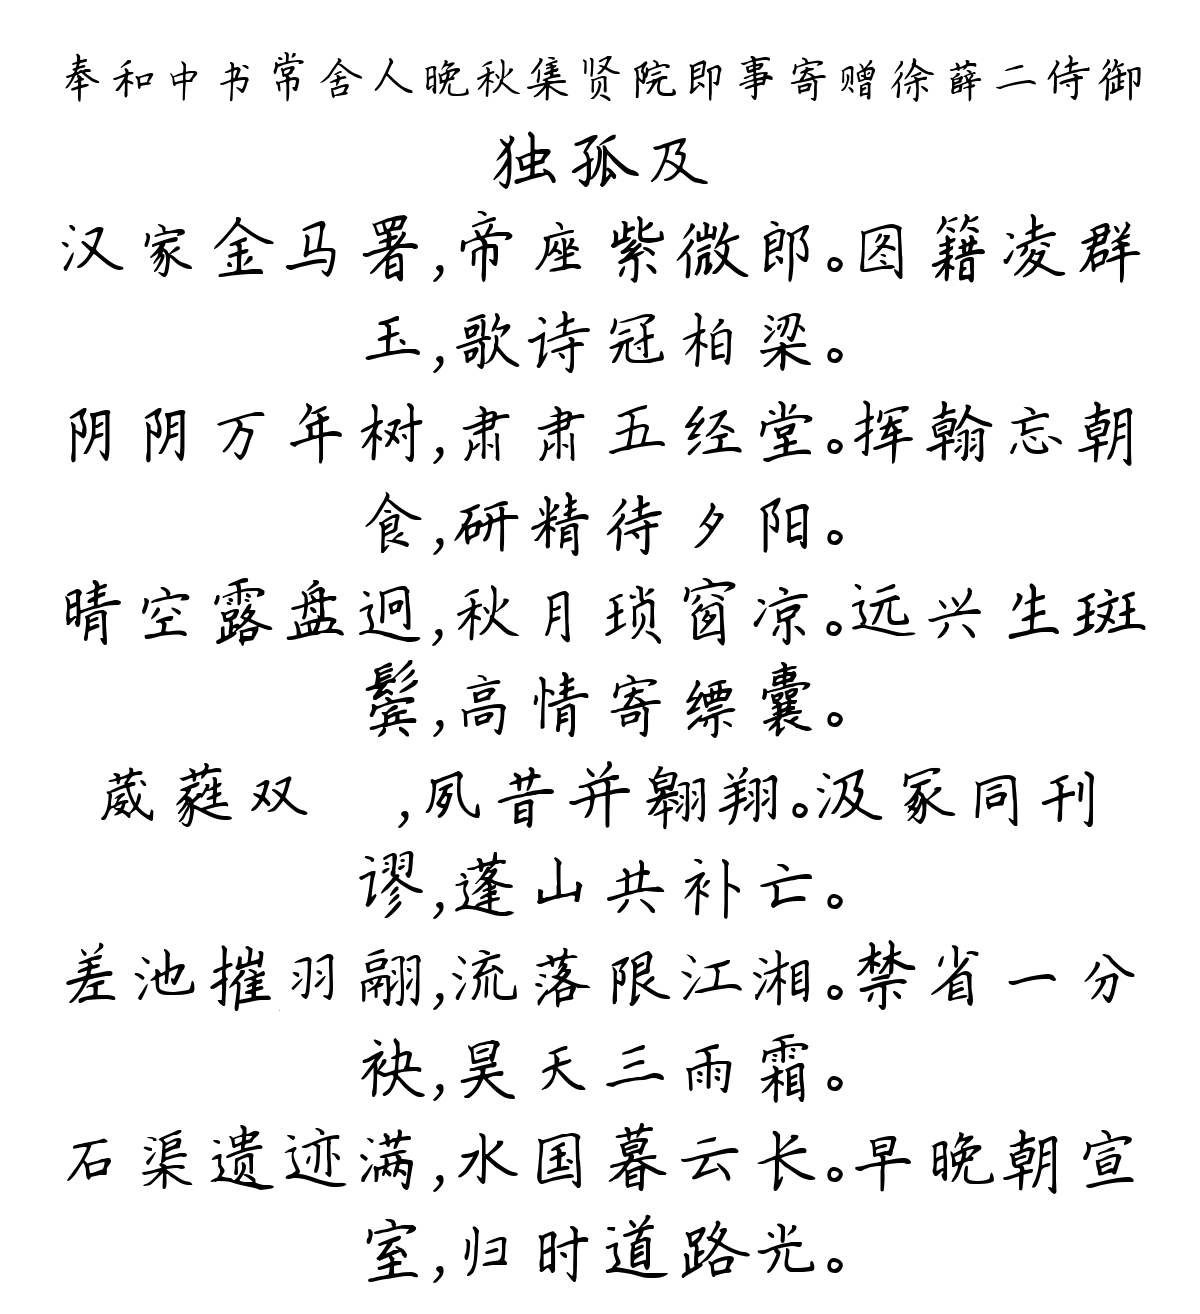 奉和中书常舍人晚秋集贤院即事寄赠徐薛二侍御
独孤及
汉家金马署,帝座紫微郎。图籍凌群
玉,歌诗冠柏梁。
阴阴万年树,肃肃五经堂。挥翰忘朝
食,研精待夕阳。
晴空露盘迥,秋月琐窗凉。远兴生斑
鬓,高情寄缥囊。
葳蕤双 ,夙昔并翱翔。汲冢同刊
谬,蓬山共补亡。
差池摧羽翮,流落限江湘。禁省一分
袂,昊天三雨霜。
石渠遗迹满,水国暮云长。早晚朝宣
室,归时道路光。